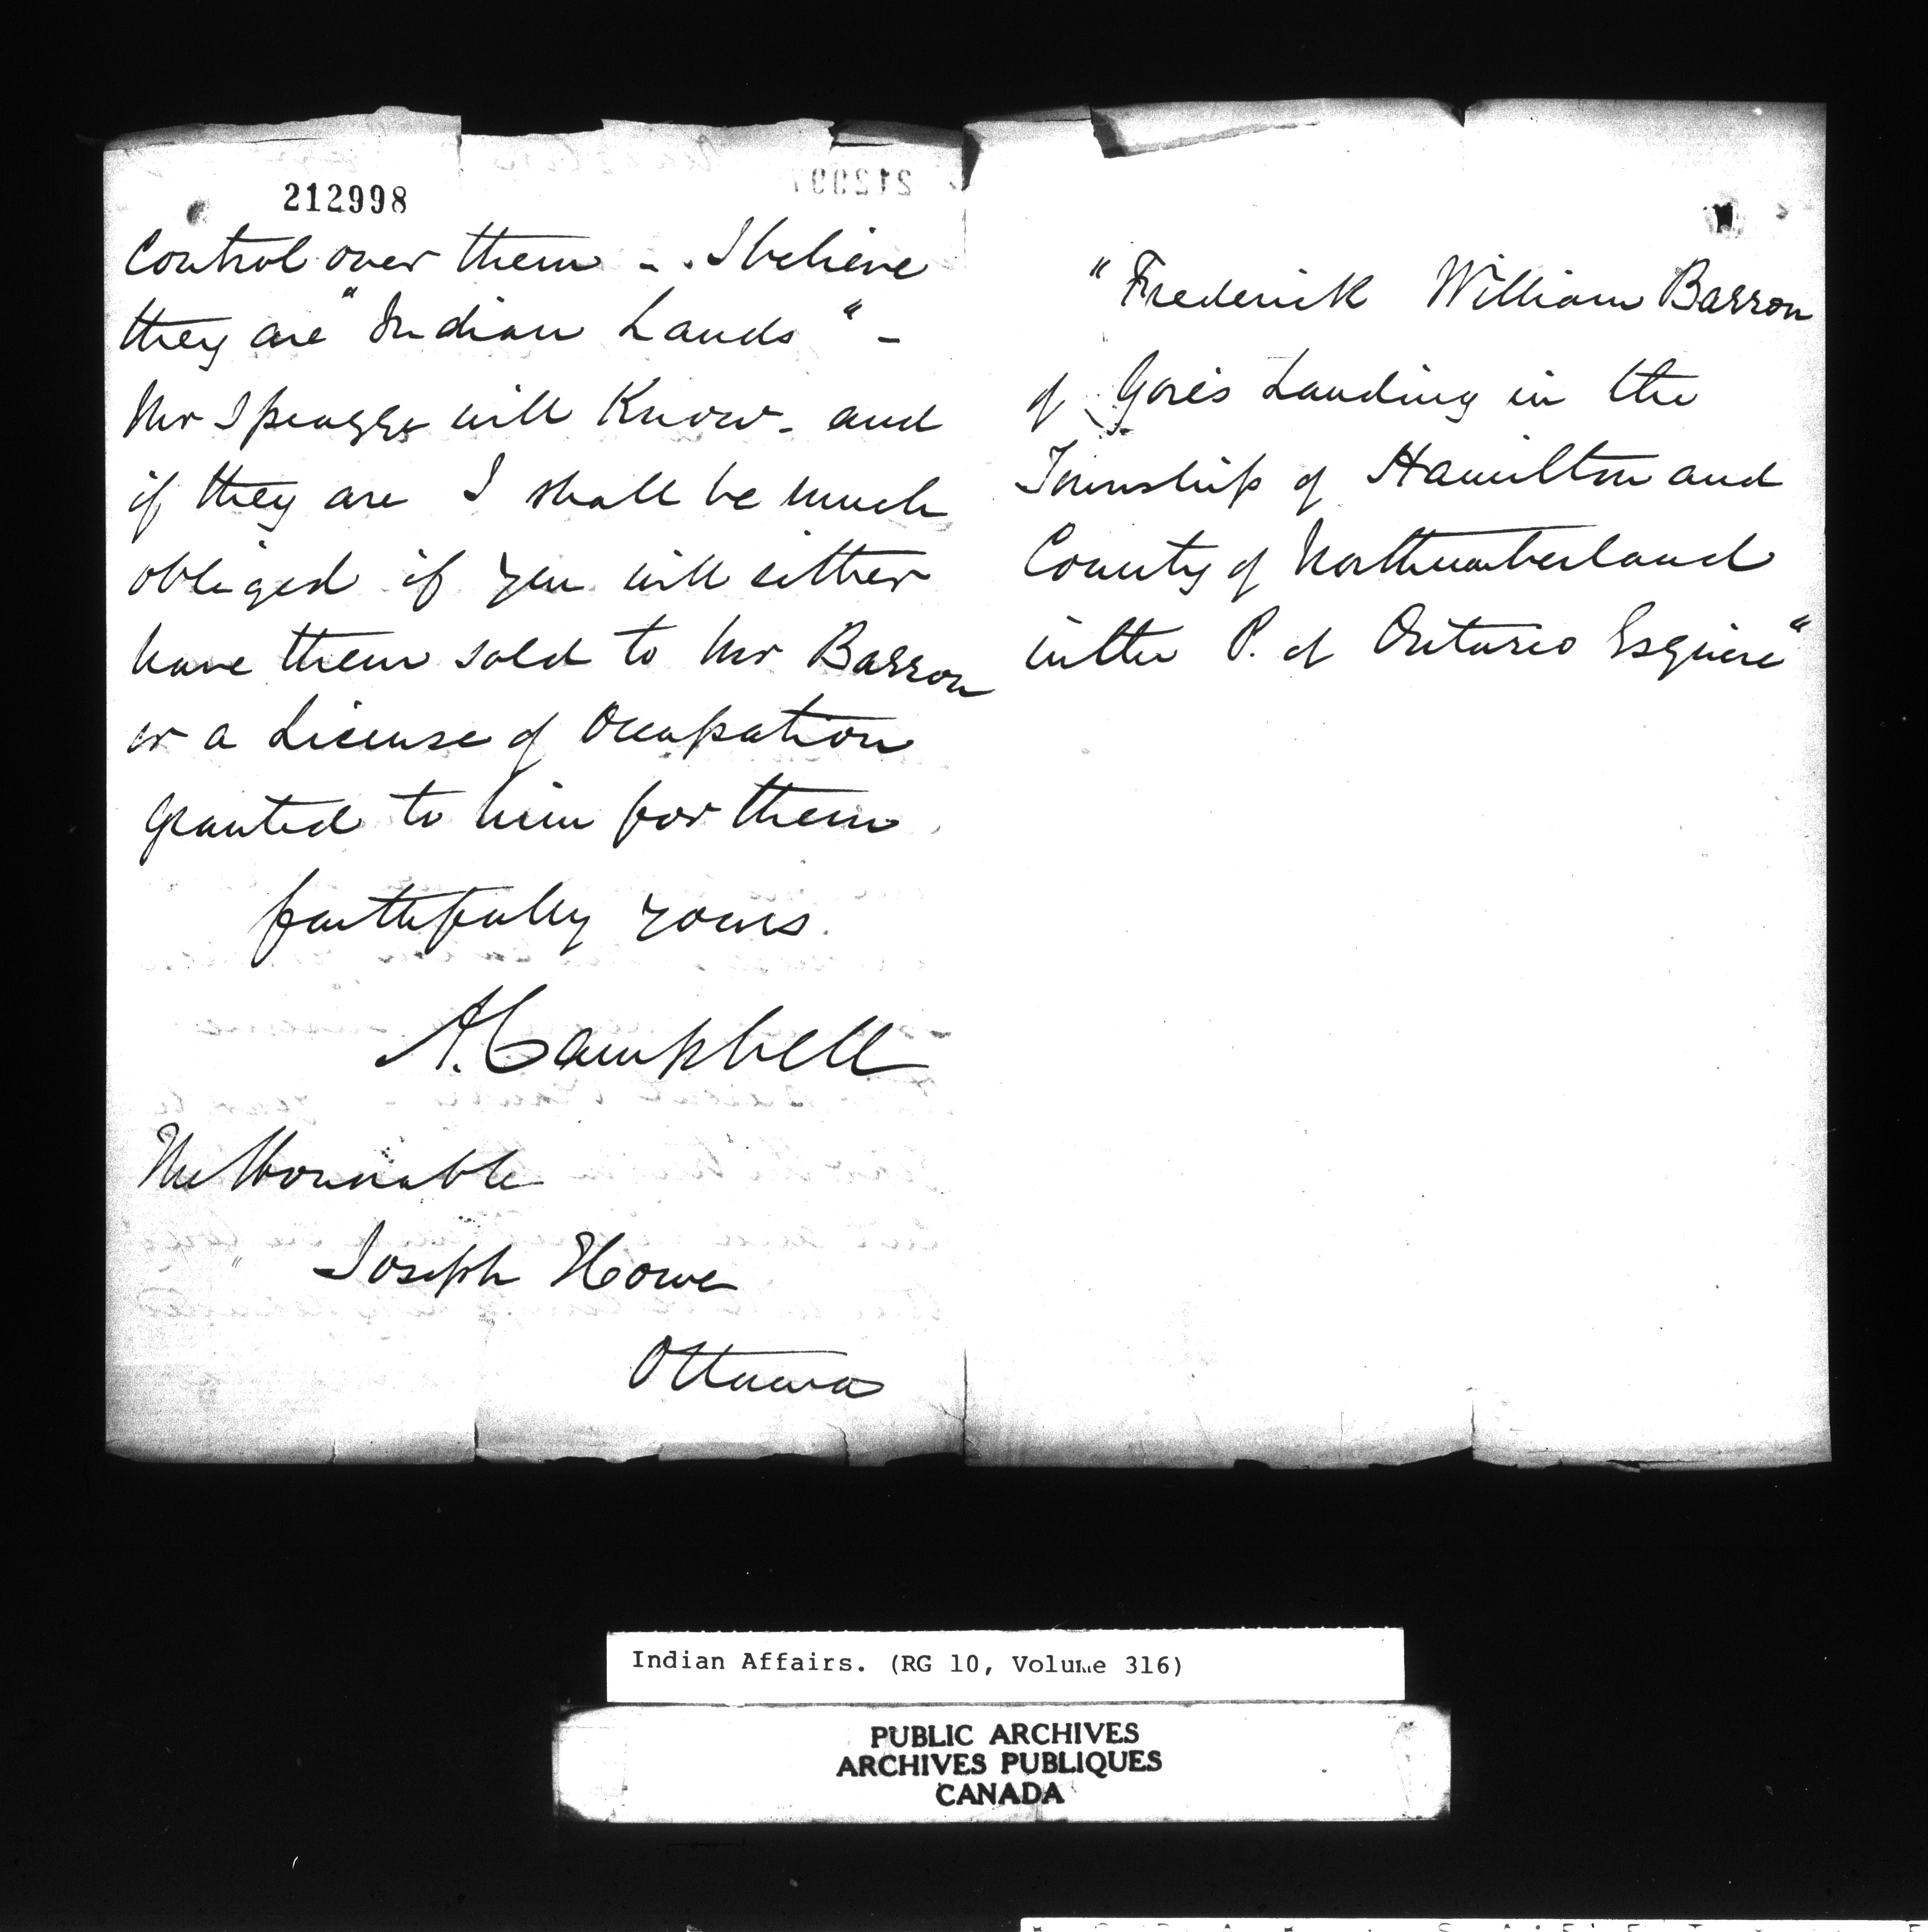 212998
Control over them - . I believe
they are "Indian Lands" -
Mr Spragge will Know - and
if they are I shall be much
obliged if you will either
have them sold to Mr Barron
or a License of Occupation
granted to him for them
faithfully yours
A. Campbell
The Honorable
Joseph Howe
Ottawa
"Frederick William Barron
of Gores Landing in the
Township of Hamilton and
County of Northumberland
in the P. of Ontario Esquire"
Indian Affairs. (RG 10, Volume 316)
PUBLIC ARCHIVES
ARCHIVES PUBLIQUES
CANADA